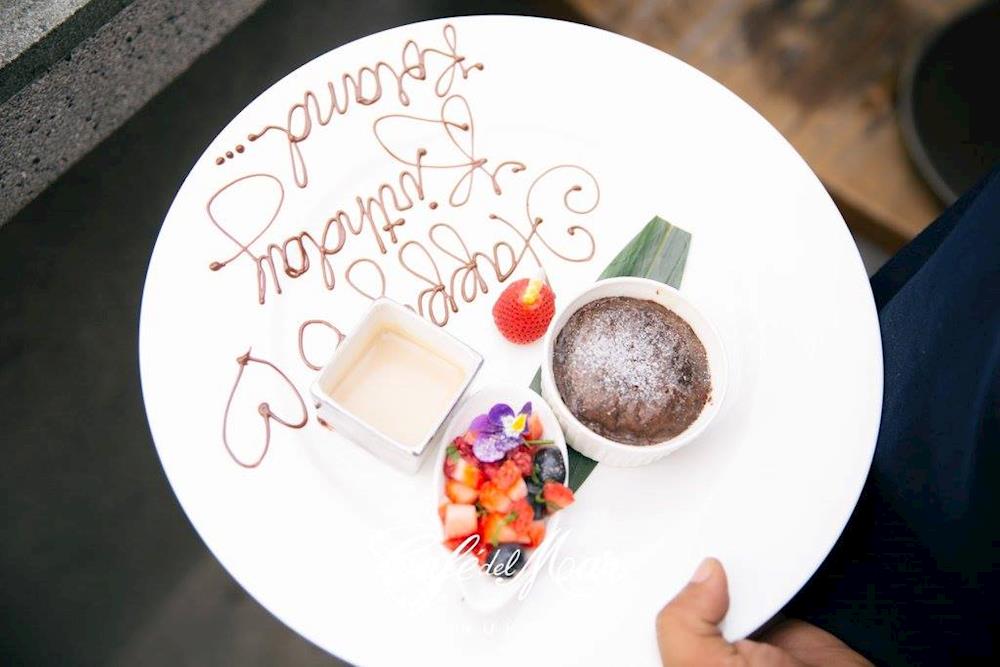 Happy
Birthday
Roland...
Café del Mar